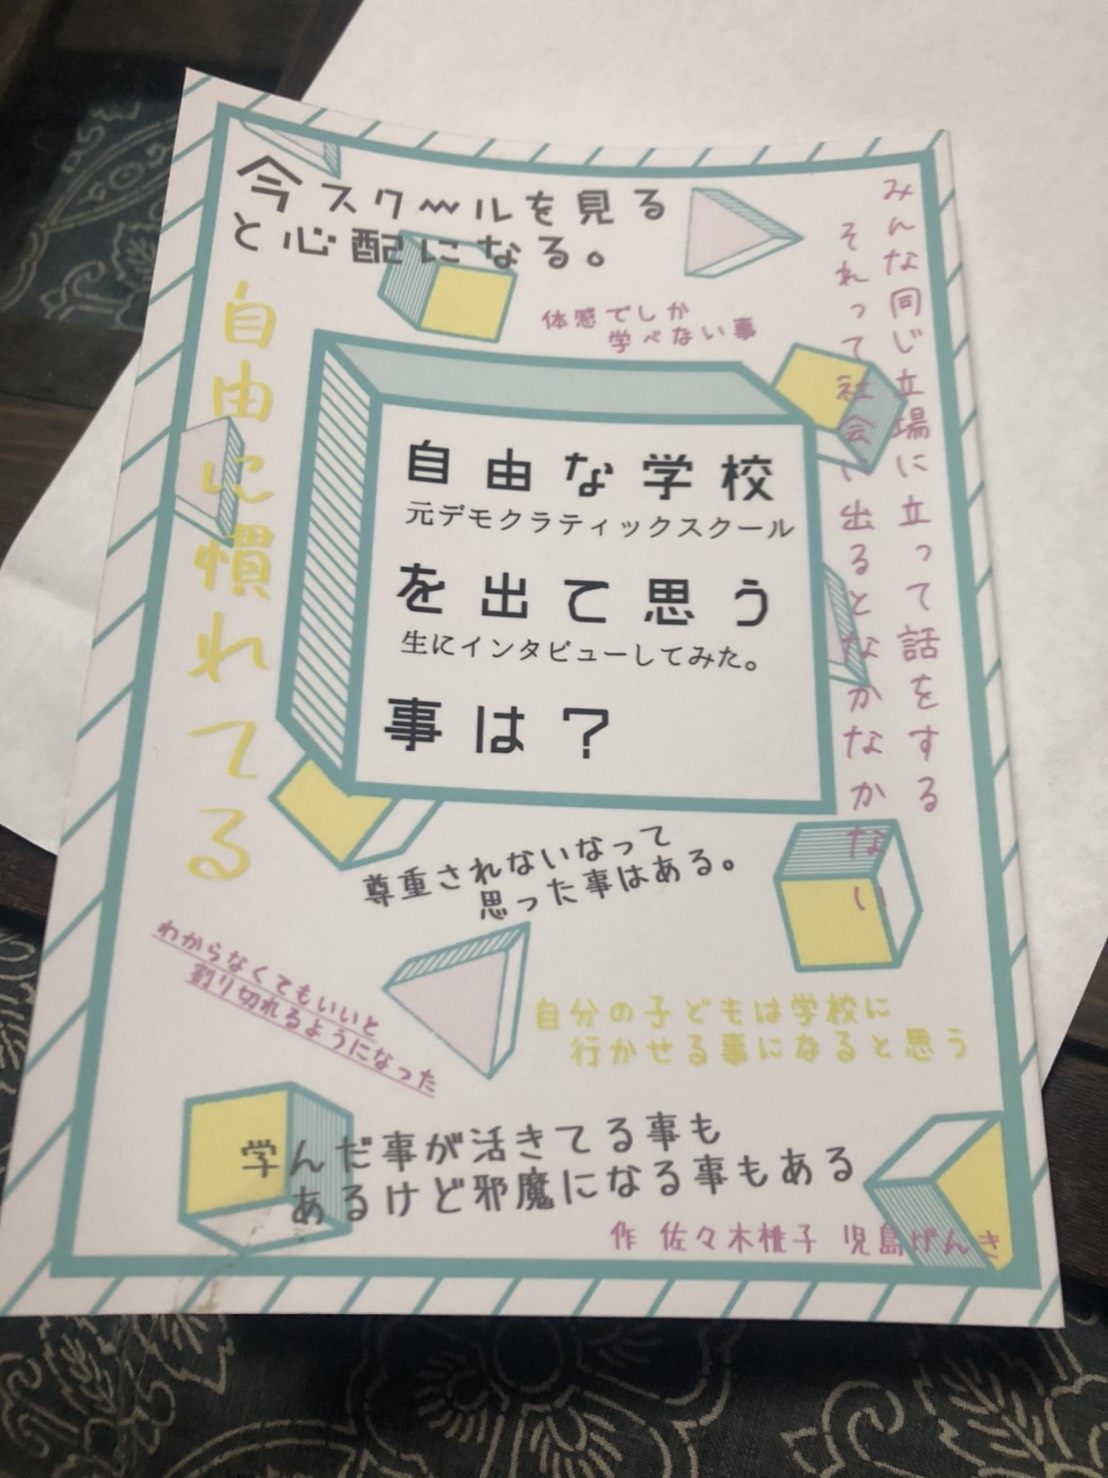 今スクールを見る
と心配になる。
みんな同じ立場に立って話をする
それって社会に出るとなかなかない
体感でしか
学べない事
自由に慣れてる
自由な学校
元デモクラティックスクール
を出て思う
生にインタビューしてみた。
事は?
尊重されないなって
思った事はある。
わからなくてもいいと
割り切れるようになった
自分の子どもは学校に
行かせる事になると思う
学んだ事が活きてる事も
あるけど邪魔になる事もある
作 佐々木椎子 児島げんき